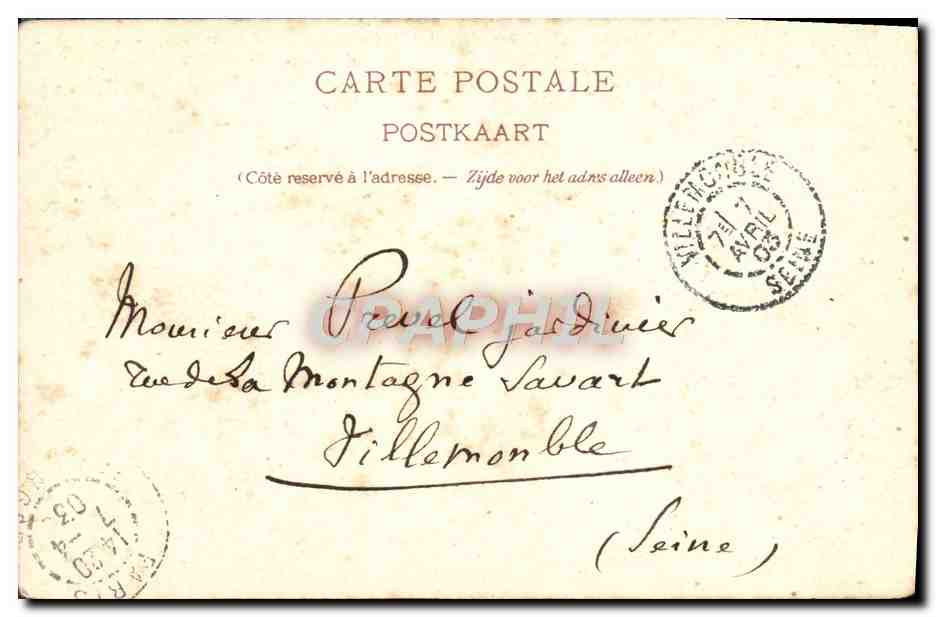 CARTE POSTALE
POSTKAART
(Côté reservé à l'adresse. — Zijde voor het adres alleen.)
VILLEMOMBLE
7E 7
AVRIL
03
SEINE
CPAPHIL
Monsieur Prevel jardinier
rue de la Montagne Savart
Villemonble
(Seine)
PARIS
14 20
7 - 4
03